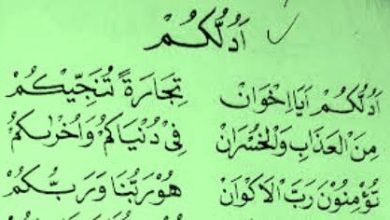 اَدُلُّكُمْ
اَدُلُّكُمْ اَيَا اِخْوَانْ تِجَارَةً تُنَجِّيْكُمْ
مِنَ الْعَذَابِ وَالْخُسْرَانْ فِيْ دُنْيَاكُمْ وَاُخْرٰىكُمْ
تُؤْمِنُوْنَ رَبَّ الْاَكْوَانْ هُوَ رَبُّنَا وَرَبُّكُمْ